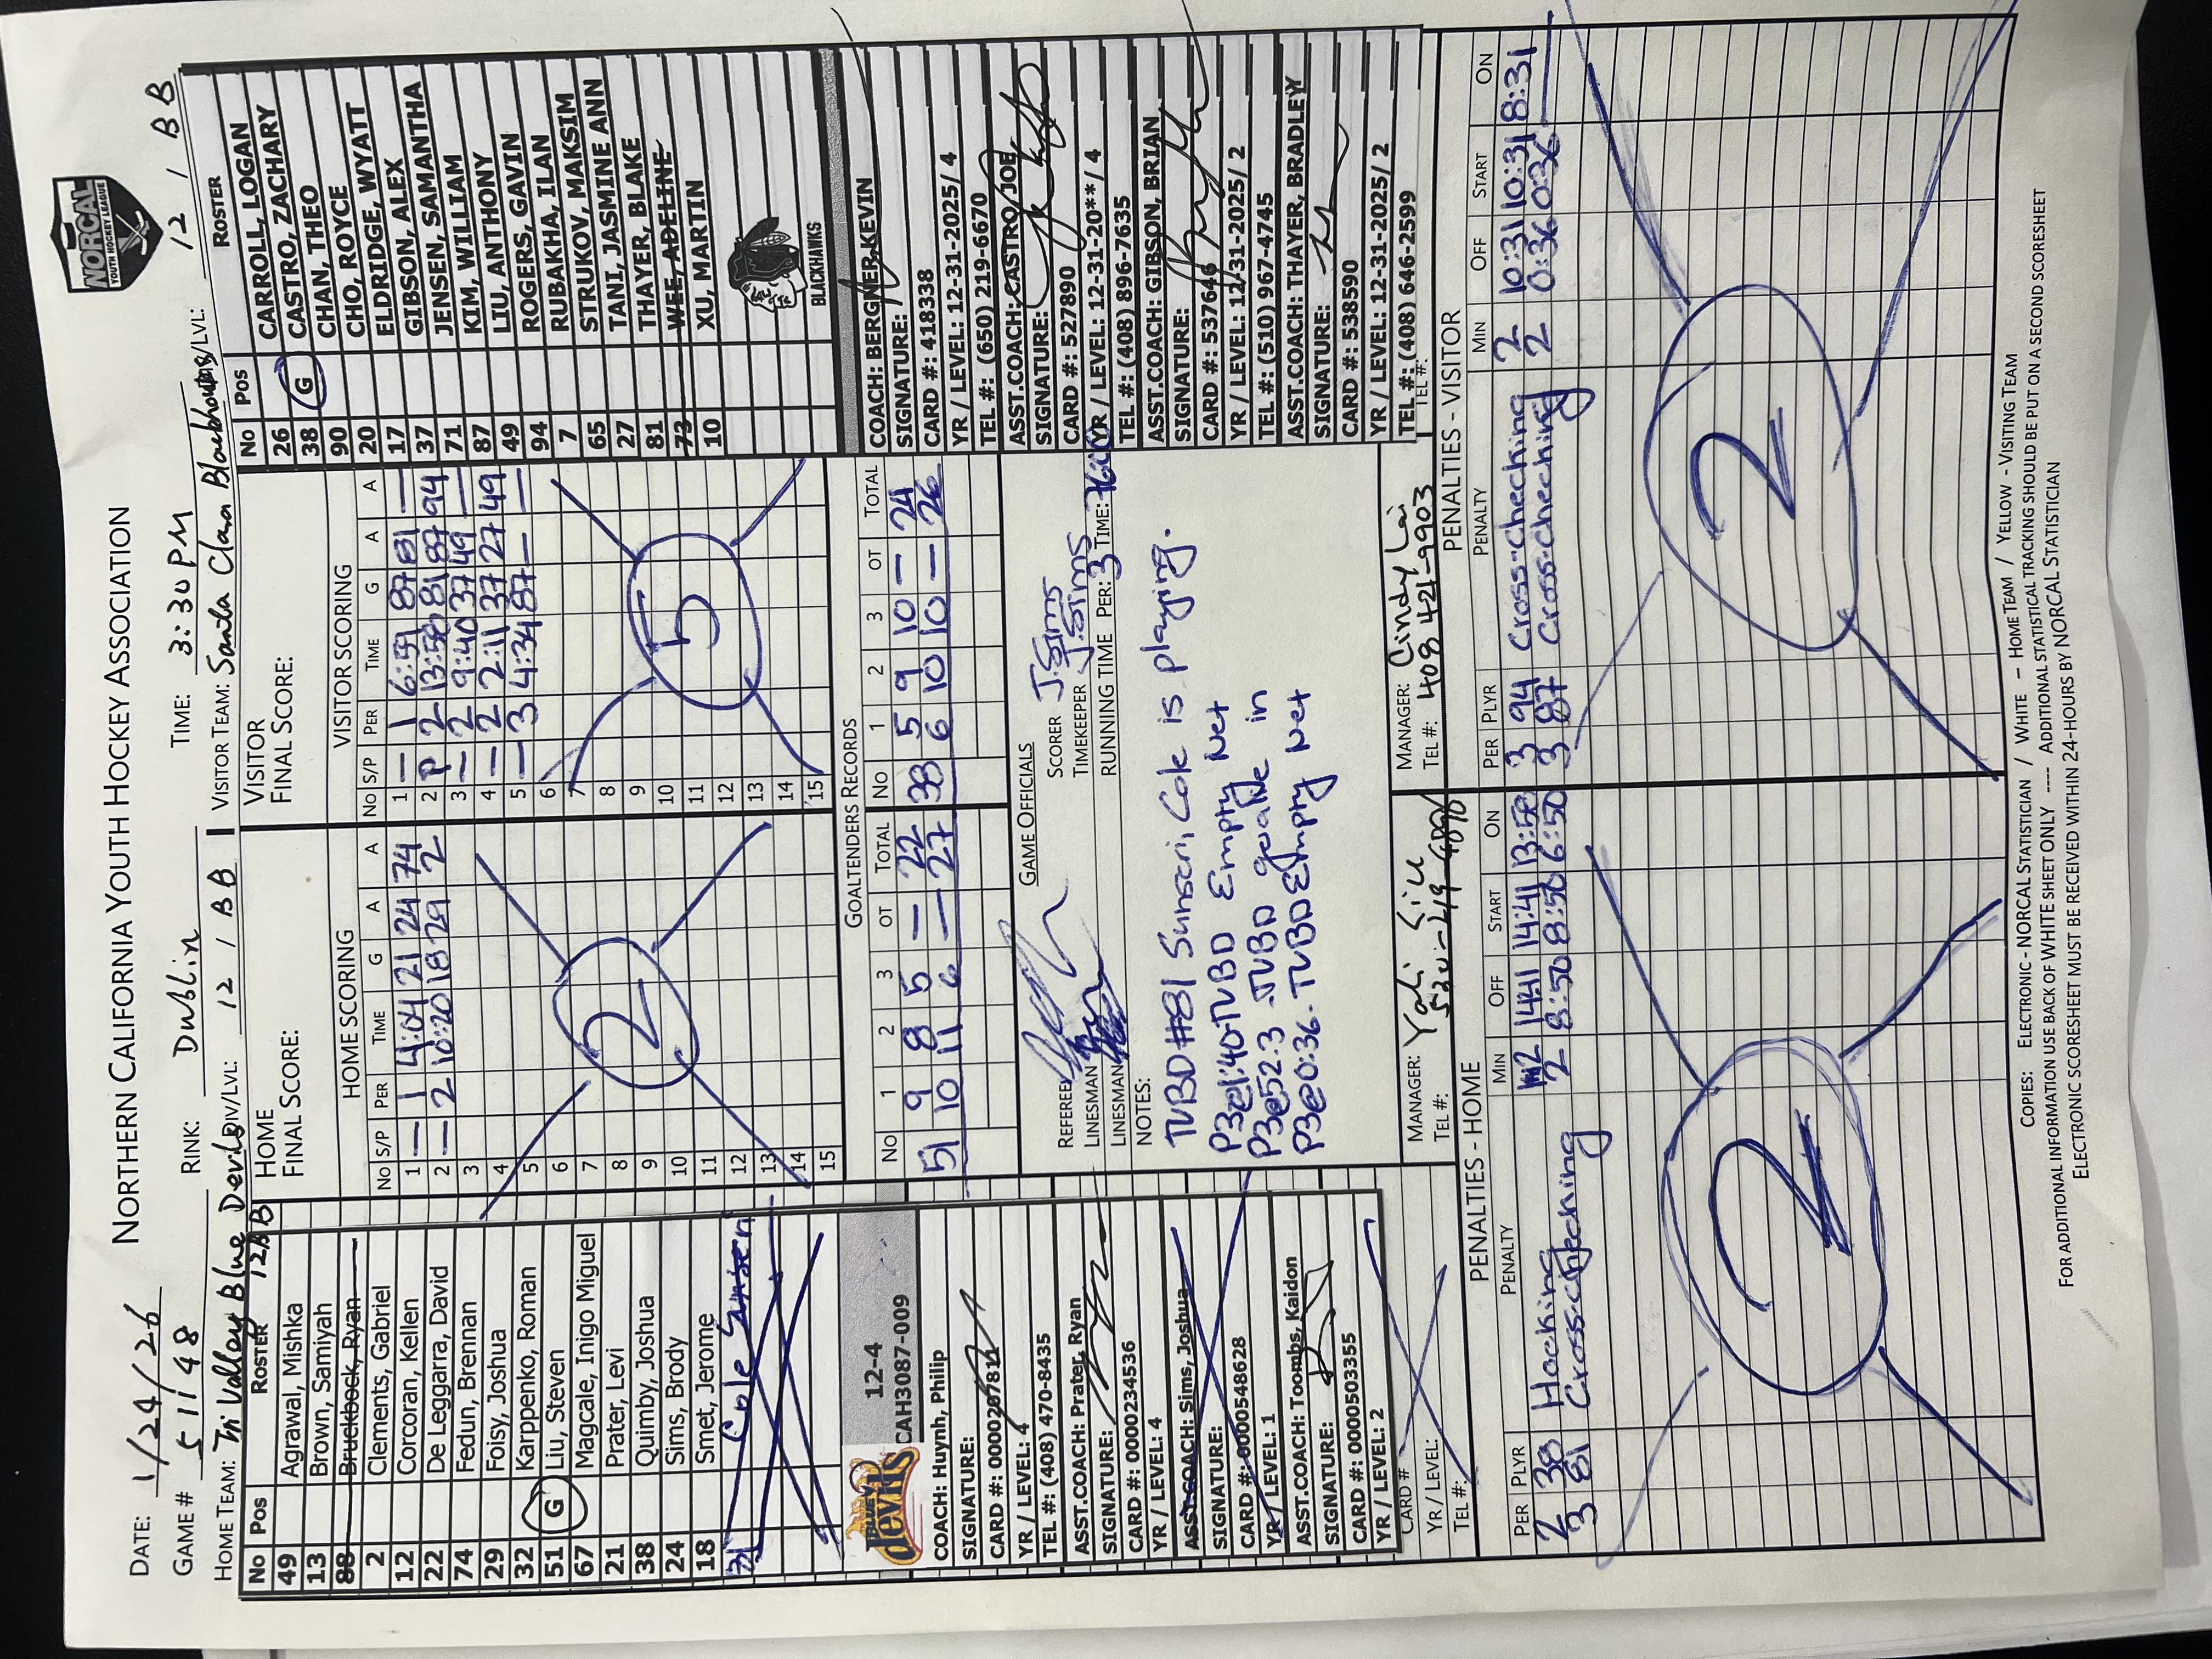 NORTHERN CALIFORNIA YOUTH HOCKEY ASSOCIATION
NORCAL
YOUTH HOCKEY LEAGUE
DATE: 1/24/26
GAME # 51148 RINK: Dublin TIME: 3:30 PM
HOME TEAM: Tri Valley Blue Devils DIV/LVL: 12 / BB VISITOR TEAM: Santa Clara Blackhawks /LVL: 12 / BB
No Pos ROSTER 12BB
49 Agrawal, Mishka
13 Brown, Samiyah
88 Bruckbock, Ryan
2 Clements, Gabriel
12 Corcoran, Kellen
22 De Leggarra, David
74 Fedun, Brennan
29 Foisy, Joshua
32 Karppenko, Roman
51 G Liu, Steven
67 Magcale, Inigo Miguel
21 Prater, Levi
38 Quimby, Joshua
24 Sims, Brody
18 Smet, Jerome
31 Cole
BLUE devils
12-4
CAH3087-009
COACH: Huynh, Philip
SIGNATURE:
CARD #: 0000207811
YR / LEVEL: 4
TEL #: (408) 470-8435
ASST.COACH: Prater, Ryan
SIGNATURE:
CARD #: 0000234536
YR / LEVEL: 4
ASST.COACH: Sims, Joshua
SIGNATURE:
CARD #: 0000548628
YR / LEVEL: 1
ASST.COACH: Toombs, Kaidon
SIGNATURE:
CARD #: 0000503355
YR / LEVEL: 2
CARD #
YR / LEVEL:
TEL #:
HOME
FINAL SCORE:
HOME SCORING
No S/P PER TIME G A A
1 — 1 4:04 21 24 74
2 — 2 10:20 18 29 2
3
4
5
6
7
8
9
10
11
12
13
14
15
2
VISITOR
FINAL SCORE:
VISITOR SCORING
No S/P PER TIME G A A
1 — 1 6:59 87 81 —
2 P 2 13:58 81 87 94
3 — 2 9:40 37 49 —
4 — 2 2:11 37 27 49
5 — 3 4:34 87 — —
6
7
8
9
10
11
12
13
14
15
5
GOALTENDERS RECORDS
No 1 2 3 OT TOTAL No 1 2 3 OT TOTAL
51 9 8 5 — 22 38 5 9 10 — 24
10 11 6 — 27 6 10 10 — 26
GAME OFFICIALS
REFEREE SCORER J. Sims
LINESMAN TIMEKEEPER J. Sims
LINESMAN RUNNING TIME PER: 3 TIME:
NOTES:
TVBD #81 Cole is playing.
P3@1:40-TVBD Empty Net
P3@52.3-TVBD goalie in
P3@0:36-TVBD Empty Net
MANAGER:
TEL #:
MANAGER: Cindy Lai
TEL #: 408 421-9903
No Pos ROSTER
26 CARROLL, LOGAN
38 G CASTRO, ZACHARY
90 CHAN, THEO
20 CHO, ROYCE
17 ELDRIDGE, WYATT
37 GIBSON, ALEX
71 JENSEN, SAMANTHA
87 KIM, WILLIAM
49 LIU, ANTHONY
94 ROGERS, GAVIN
7 RUBAKHA, ILAN
65 STRUKOV, MAKSIM
27 TANI, JASMINE ANN
81 THAYER, BLAKE
73 WEE, ADELINE
10 XU, MARTIN
BLACKHAWKS
COACH: BERGNER, KEVIN
SIGNATURE:
CARD #: 418338
YR / LEVEL: 12-31-2025/ 4
TEL #: (650) 219-6670
ASST.COACH: CASTRO, JOE
SIGNATURE:
CARD #: 527890
YR / LEVEL: 12-31-20**/ 4
TEL #: (408) 896-7635
ASST.COACH: GIBSON, BRIAN
SIGNATURE:
CARD #: 537646
YR / LEVEL: 12/31-2025/ 2
TEL #: (510) 967-4745
ASST.COACH: THAYER, BRADLEY
SIGNATURE:
CARD #: 538590
YR / LEVEL: 12-31-2025/ 2
TEL #: (408) 646-2599
TEL #:
PENALTIES - HOME
PER PLYR PENALTY MIN OFF START ON
2 38 Hooking 2 14:41 14:41 13:58
3 81 Cross-checking 2 8:50 8:50 6:50
2
PENALTIES - VISITOR
PER PLYR PENALTY MIN OFF START ON
3 94 Cross-checking 2 10:31 10:31 8:31
3 87 Cross-checking 2 0:36 0:36 —
2
COPIES: ELECTRONIC - NORCAL STATISTICIAN / WHITE – HOME TEAM / YELLOW - VISITING TEAM
FOR ADDITIONAL INFORMATION USE BACK OF WHITE SHEET ONLY ---- ADDITIONAL STATISTICAL TRACKING SHOULD BE PUT ON A SECOND SCORESHEET
ELECTRONIC SCORESHEET MUST BE RECEIVED WITHIN 24-HOURS BY NORCAL STATISTICIAN